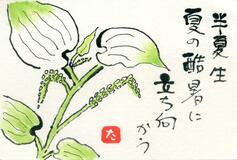 半夏生
夏の酷暑に
立ち向
かう
た